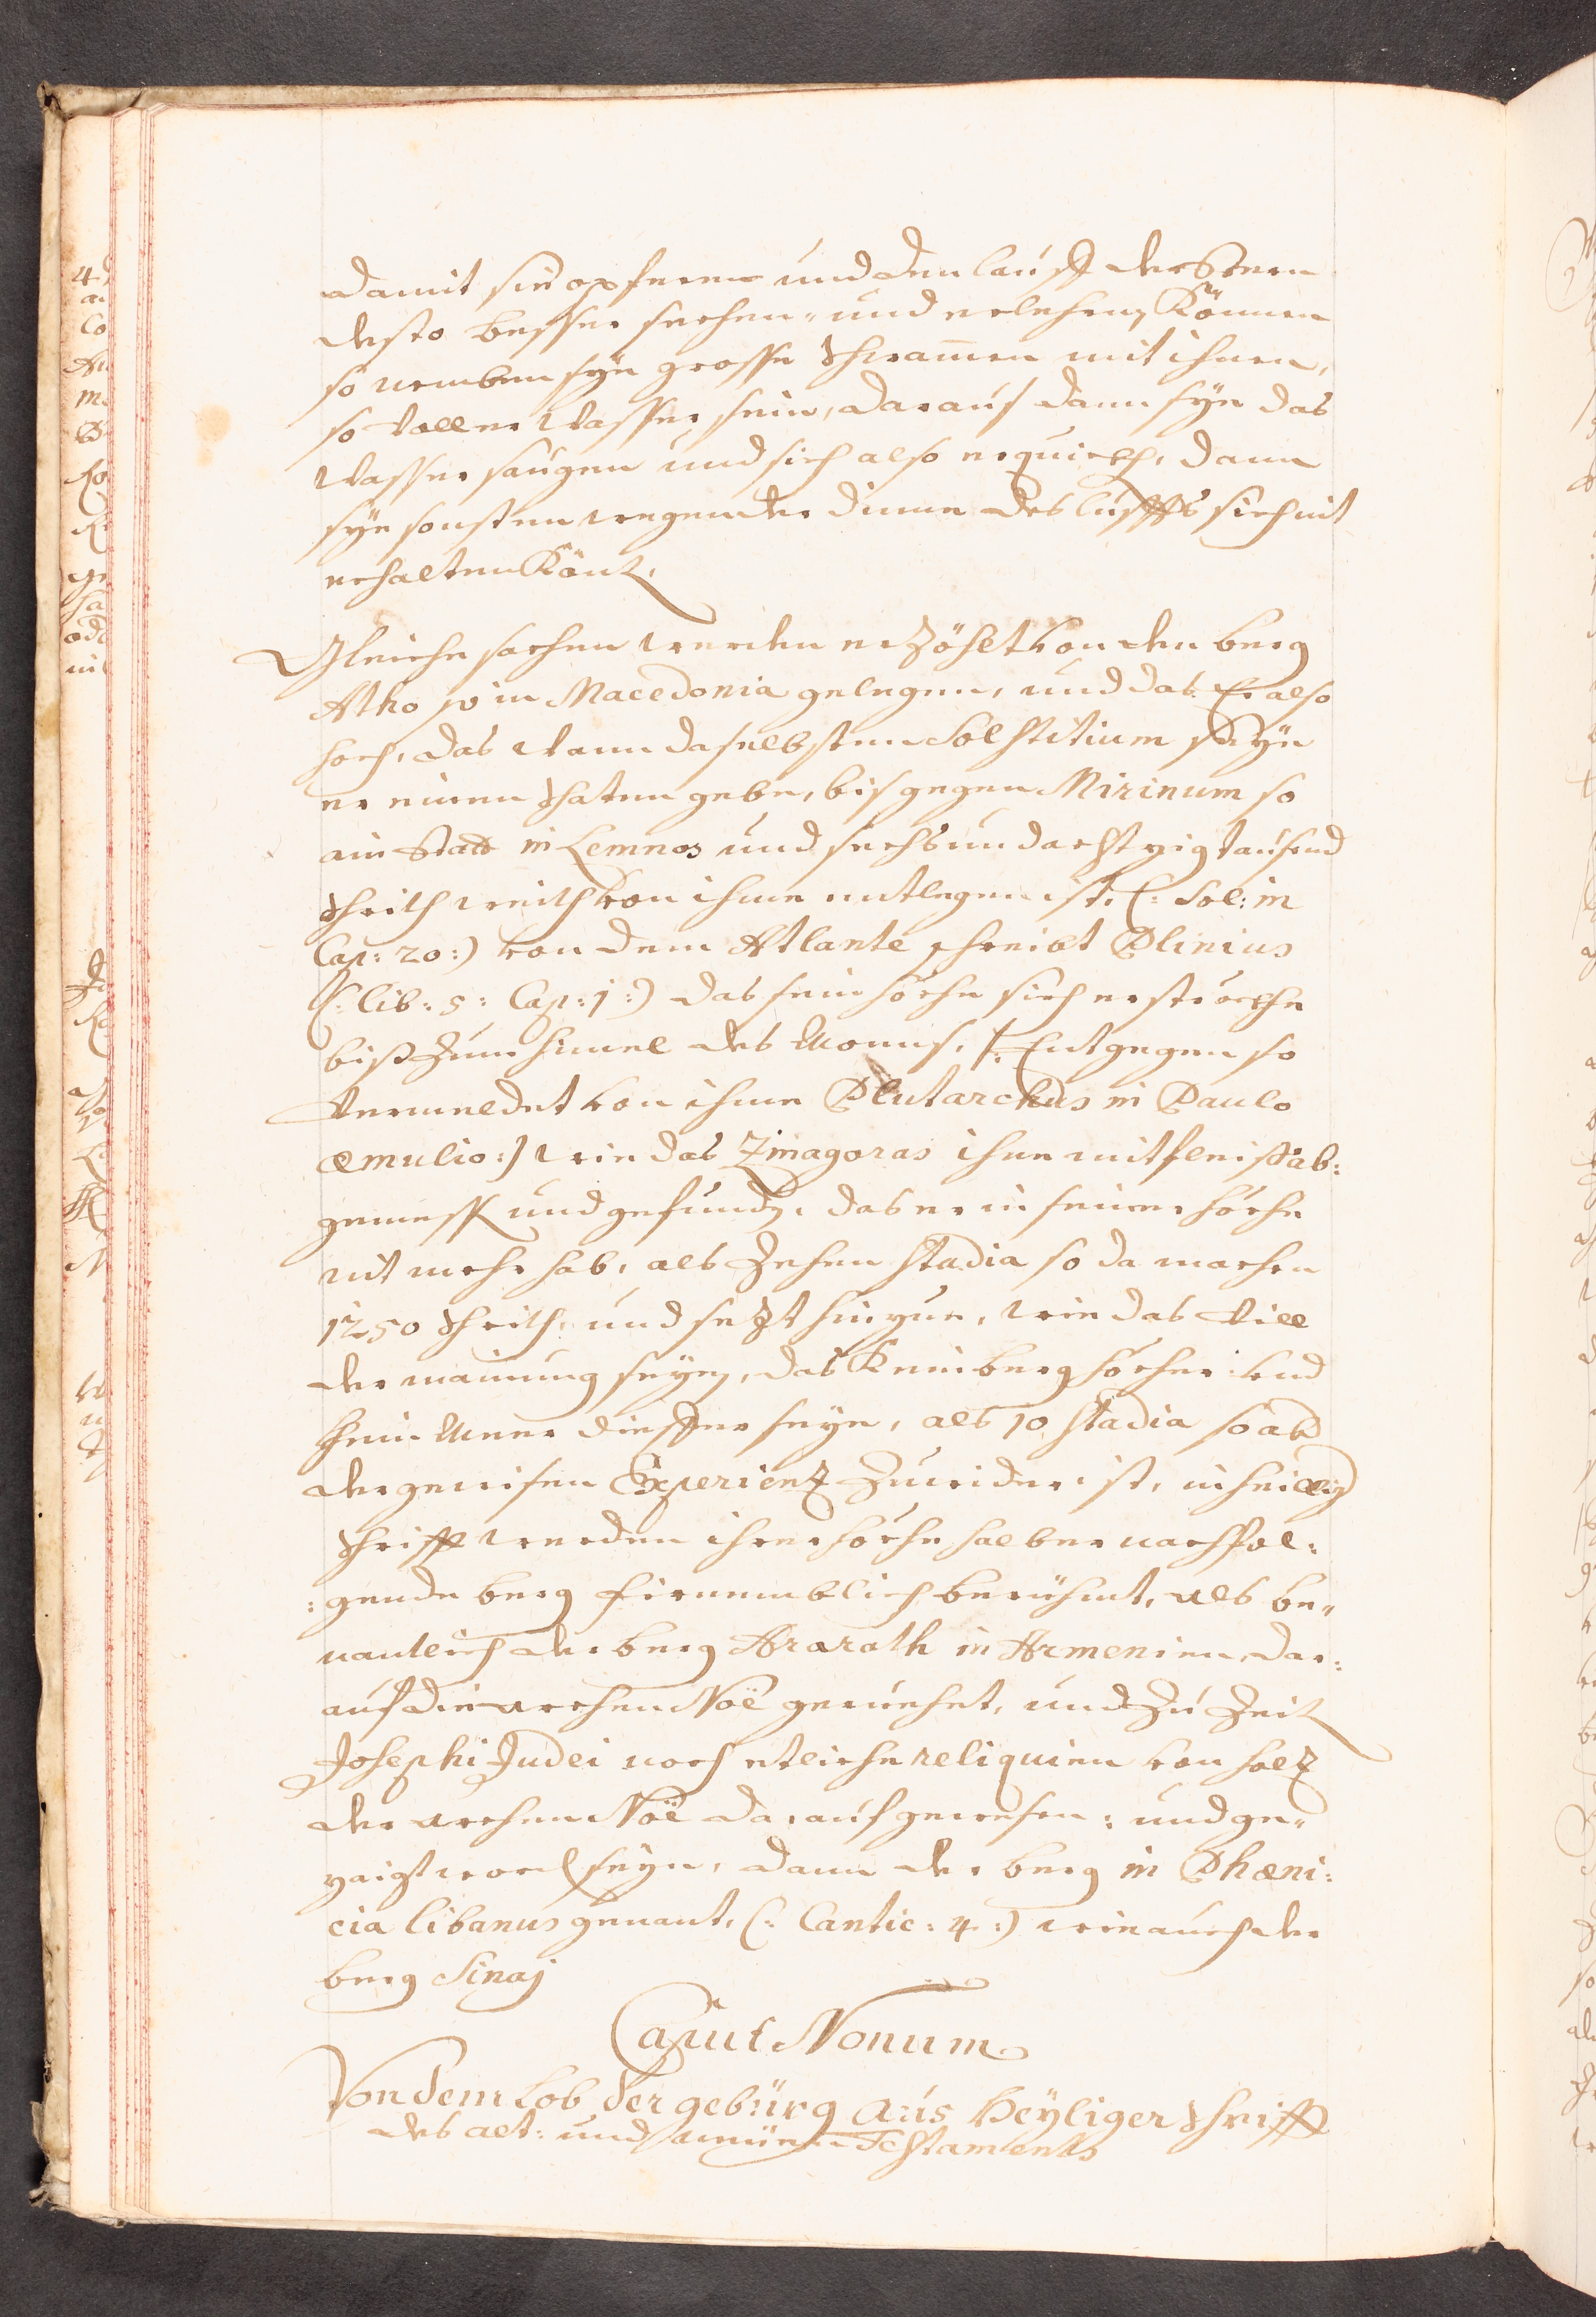 damit sie opferen und den lauff der Stern
desto besser sechen- und erlehrnen Können
so nemben sye grosse Schwammen mit ihnen,
so voller Wasser sein, daraus dann sye das
Wasser saugen und sich also erquickhen, dann
sye sonsten wegen der dinne des luffts sich nit
erhalten Könten.
Gleiche sachen werden erzöhlt von den berg
Atho so in Macedonia gelegen, und das Er also
hoch, das wann daselbsten Solstitium seye
er einen Schaten gebe, bis gegen Mirinum so
ain Statt in Lemnos und sechsundachtzig tausend
Schrith weith von ihme entlegen ist. (: Sol: in
Cap: 20:) von dem Atlante schreibt Plinius
(: lib: 5: Cap: 1:) das sein höche sich erströckhe
biß zum himel des Mons. (: Entgegen so
vermeldet von ihme Plutarchus in Paulo
æmulio:) wie das Zinagoras ihne mit fleiß ab:
gemessen und gefunden, das er in seiner höche
nit mehr hab, als Zehen Stadia so da machen
1250 Schrith, und sezt hinzue, wie das Vill
der mainung seyen, das Kein berg höcher und
Khein Meer dieffer seye, als 10 Stadia so ab
der gewisen Experienz zuwider ist, in heillig
Schrifft werden ihrer höche halber nachfol:
:gende berg firnemblich beriehmt, als be-
nantlich der berg Ararath in Armenien dar:
auf die archen Noë geruehet, und zu Zeit
Josephi Judei noch etliche reliquien von holz
der archen Noë darauf gewesen: und ge-
zaigt worden seyn, dann der berg in Phæni:
cia libanus genant, (: Cantic: 4:) wie auch der
berg Sinaj
Caput Nonum
Von dem Lob der gebürg aus Heÿliger Schrifft
des alt: und neüen Testaments